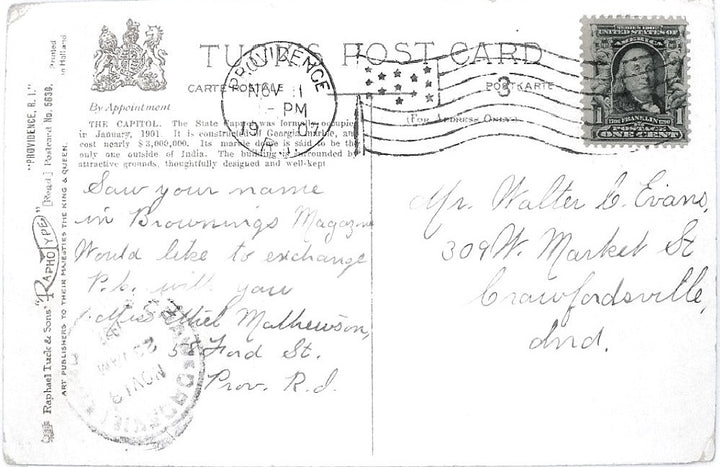 TUCK'S POST CARD
CARTE POSTALE
POSTKARTE
(For Address Only)
By Appointment
THE CAPITOL. The State was formally occupied
in January, 1901. It is constructed of Georgia marble, and
cost nearly $3,000,000. Its marble dome is said to be the
only one outside of India. The building is surrounded by
attractive grounds, thoughtfully designed and well-kept
PROVIDENCE
NOV 11
-PM
1907
R.I.
3
SERIES 1902
UNITED STATES OF
AMERICA
1 FRANKLIN 1
POSTAGE
ONE CENT
Saw your name
in Brownings Magazine
Would like to exchange
P.c. with you
Ethel Mathewson,
58 Ford St.
Prov. R.I.
Mr. Walter C. Evans,
309 W. Market St
Crawfordsville,
Ind.
NOV 13
AM
"PROVIDENCE, R. I."
Raphael Tuck & Sons' "RAPHOTYPE" [Regd.] Postcard No. 5630.
ART PUBLISHERS TO THEIR MAJESTIES THE KING & QUEEN.
Printed
in Holland